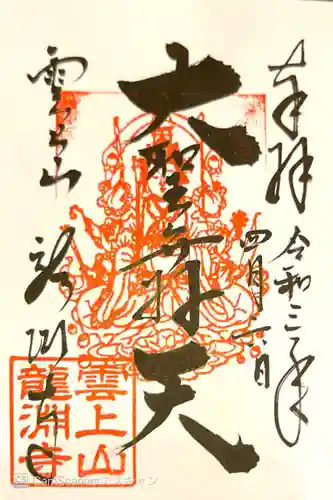 奉拝
令和三年
四月六日
大聖弁財天
雲上山
龍渕寺
雲上山
龍淵寺
CamScannerでスキャン